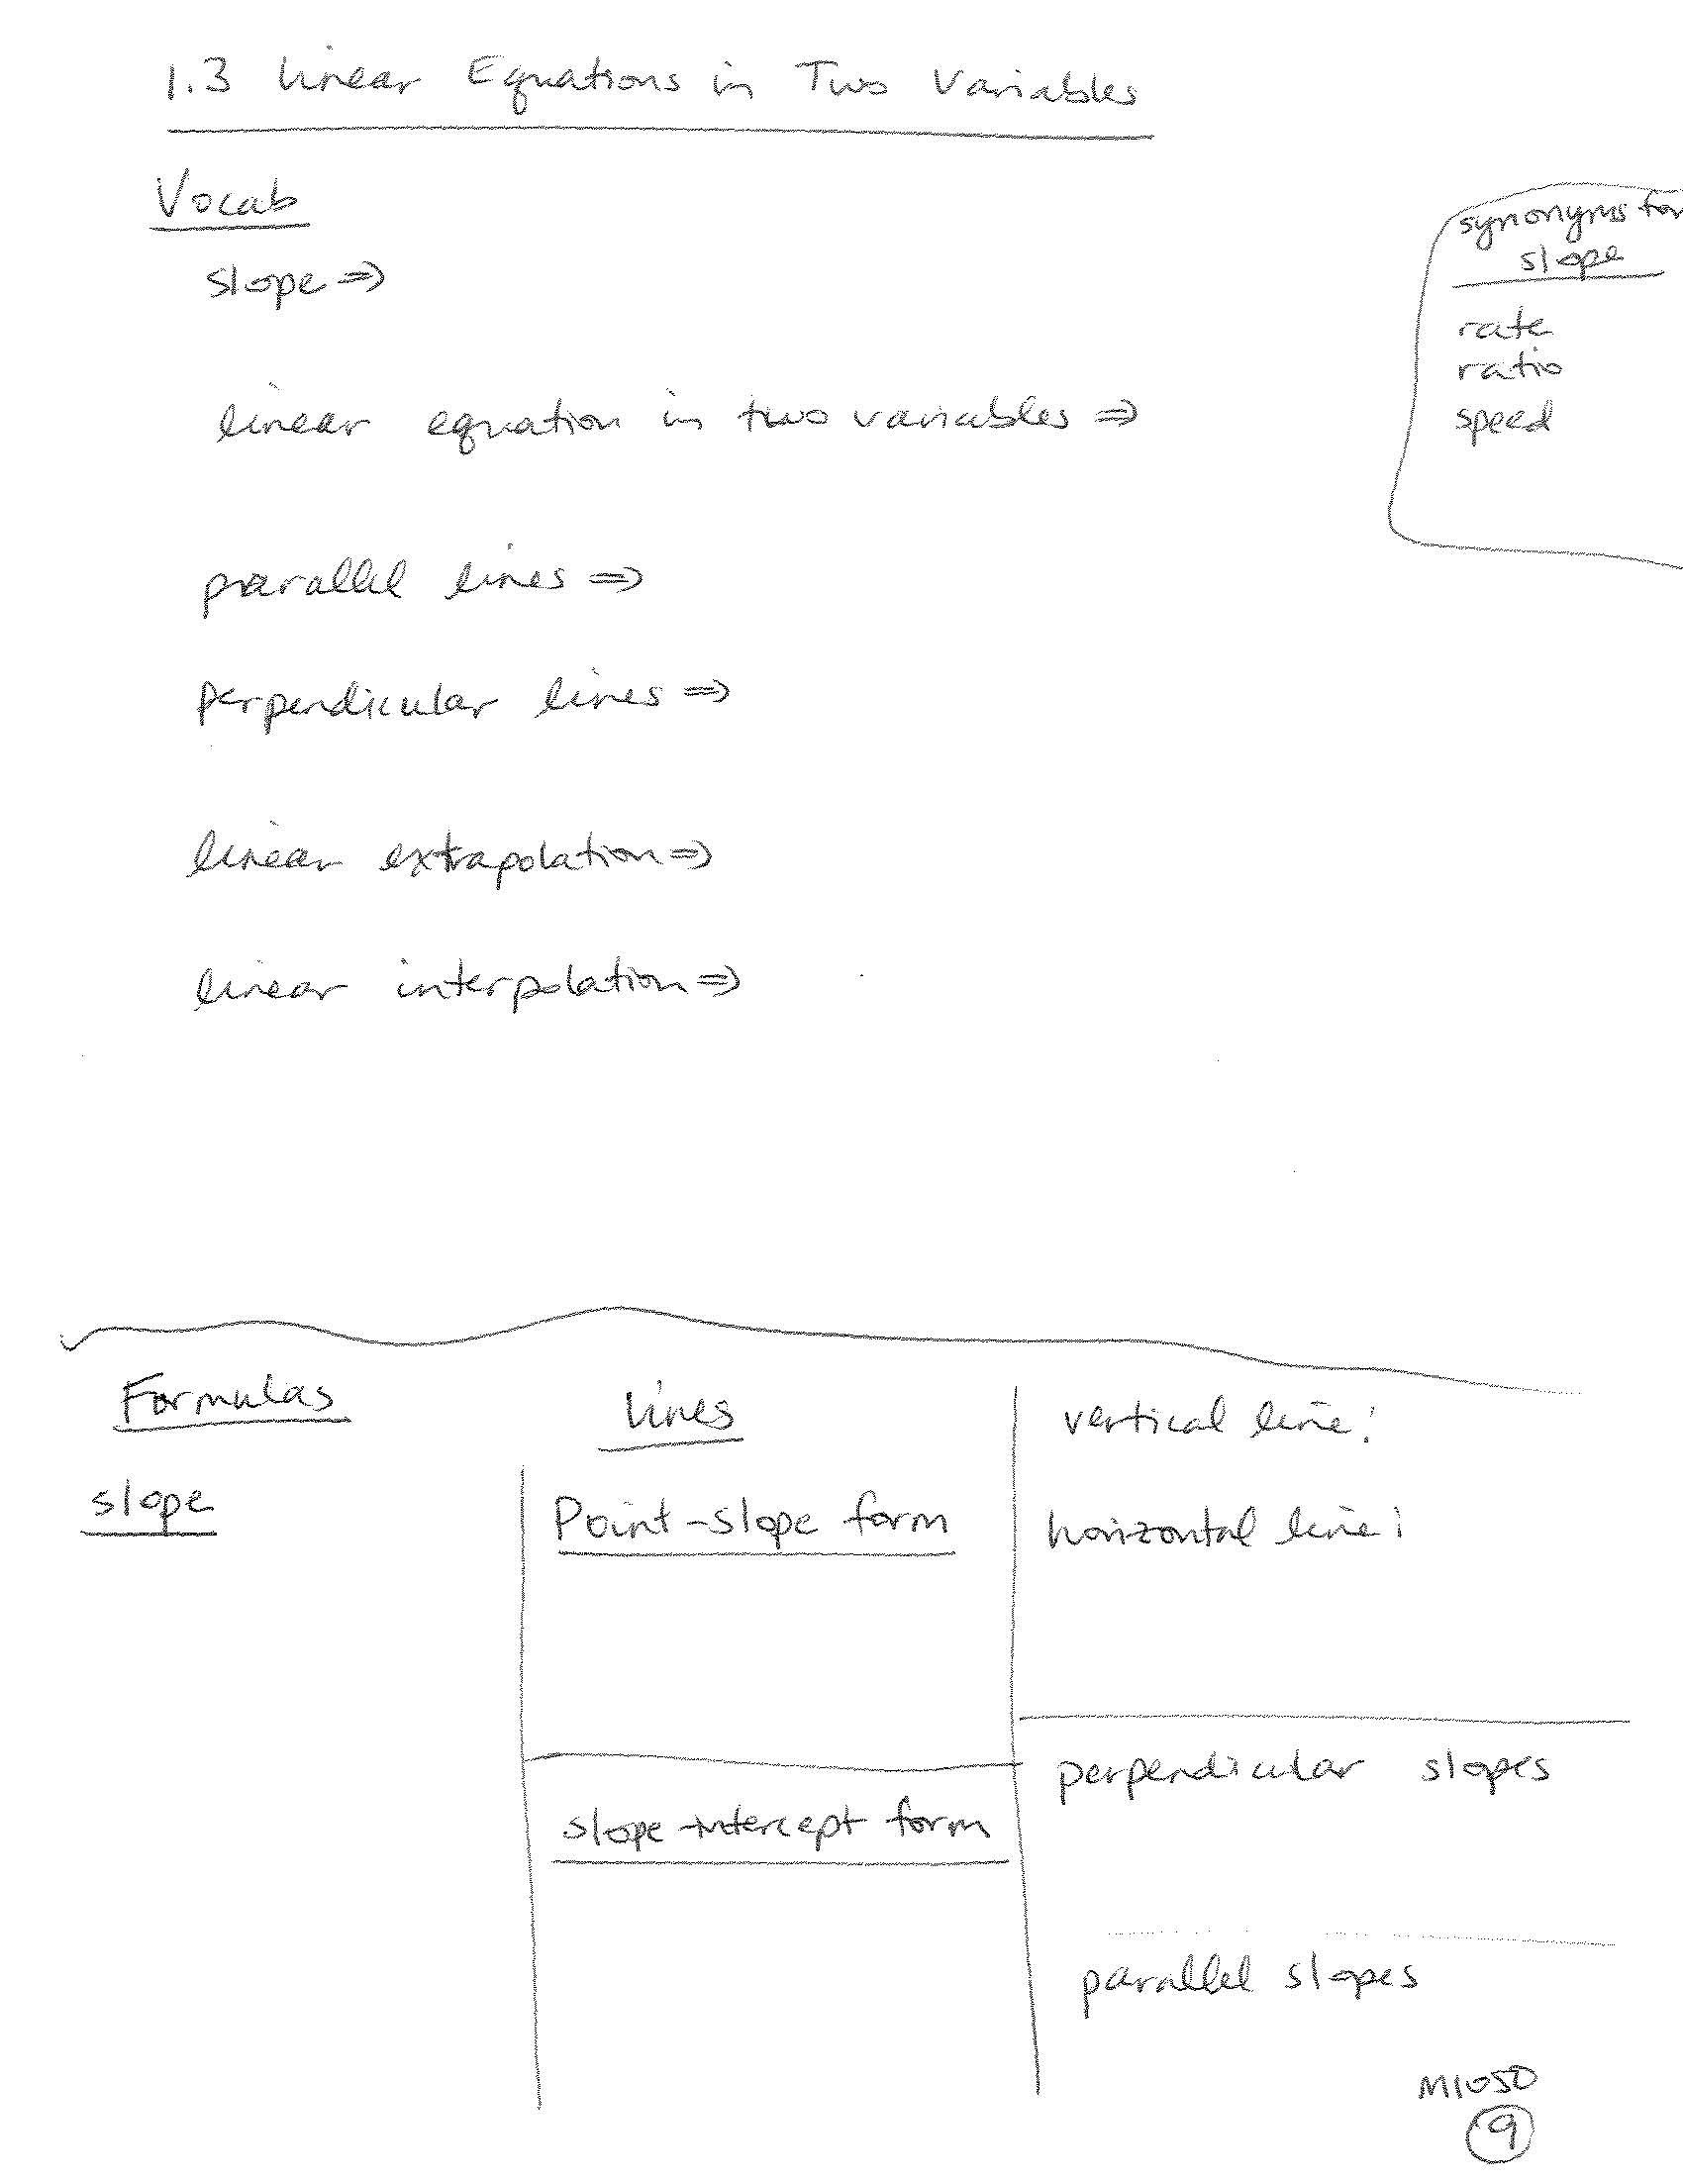 1.3 Linear Equations in Two Variables
Vocab
slope ⇒
synonyms for
slope
rate
ratio
speed
linear equation in two variables ⇒
parallel lines ⇒
perpendicular lines ⇒
linear extrapolation ⇒
linear interpolation ⇒
Formulas
slope
Lines
Point-slope form
slope-intercept form
vertical line:
horizontal line:
perpendicular slopes
parallel slopes
M1050
9